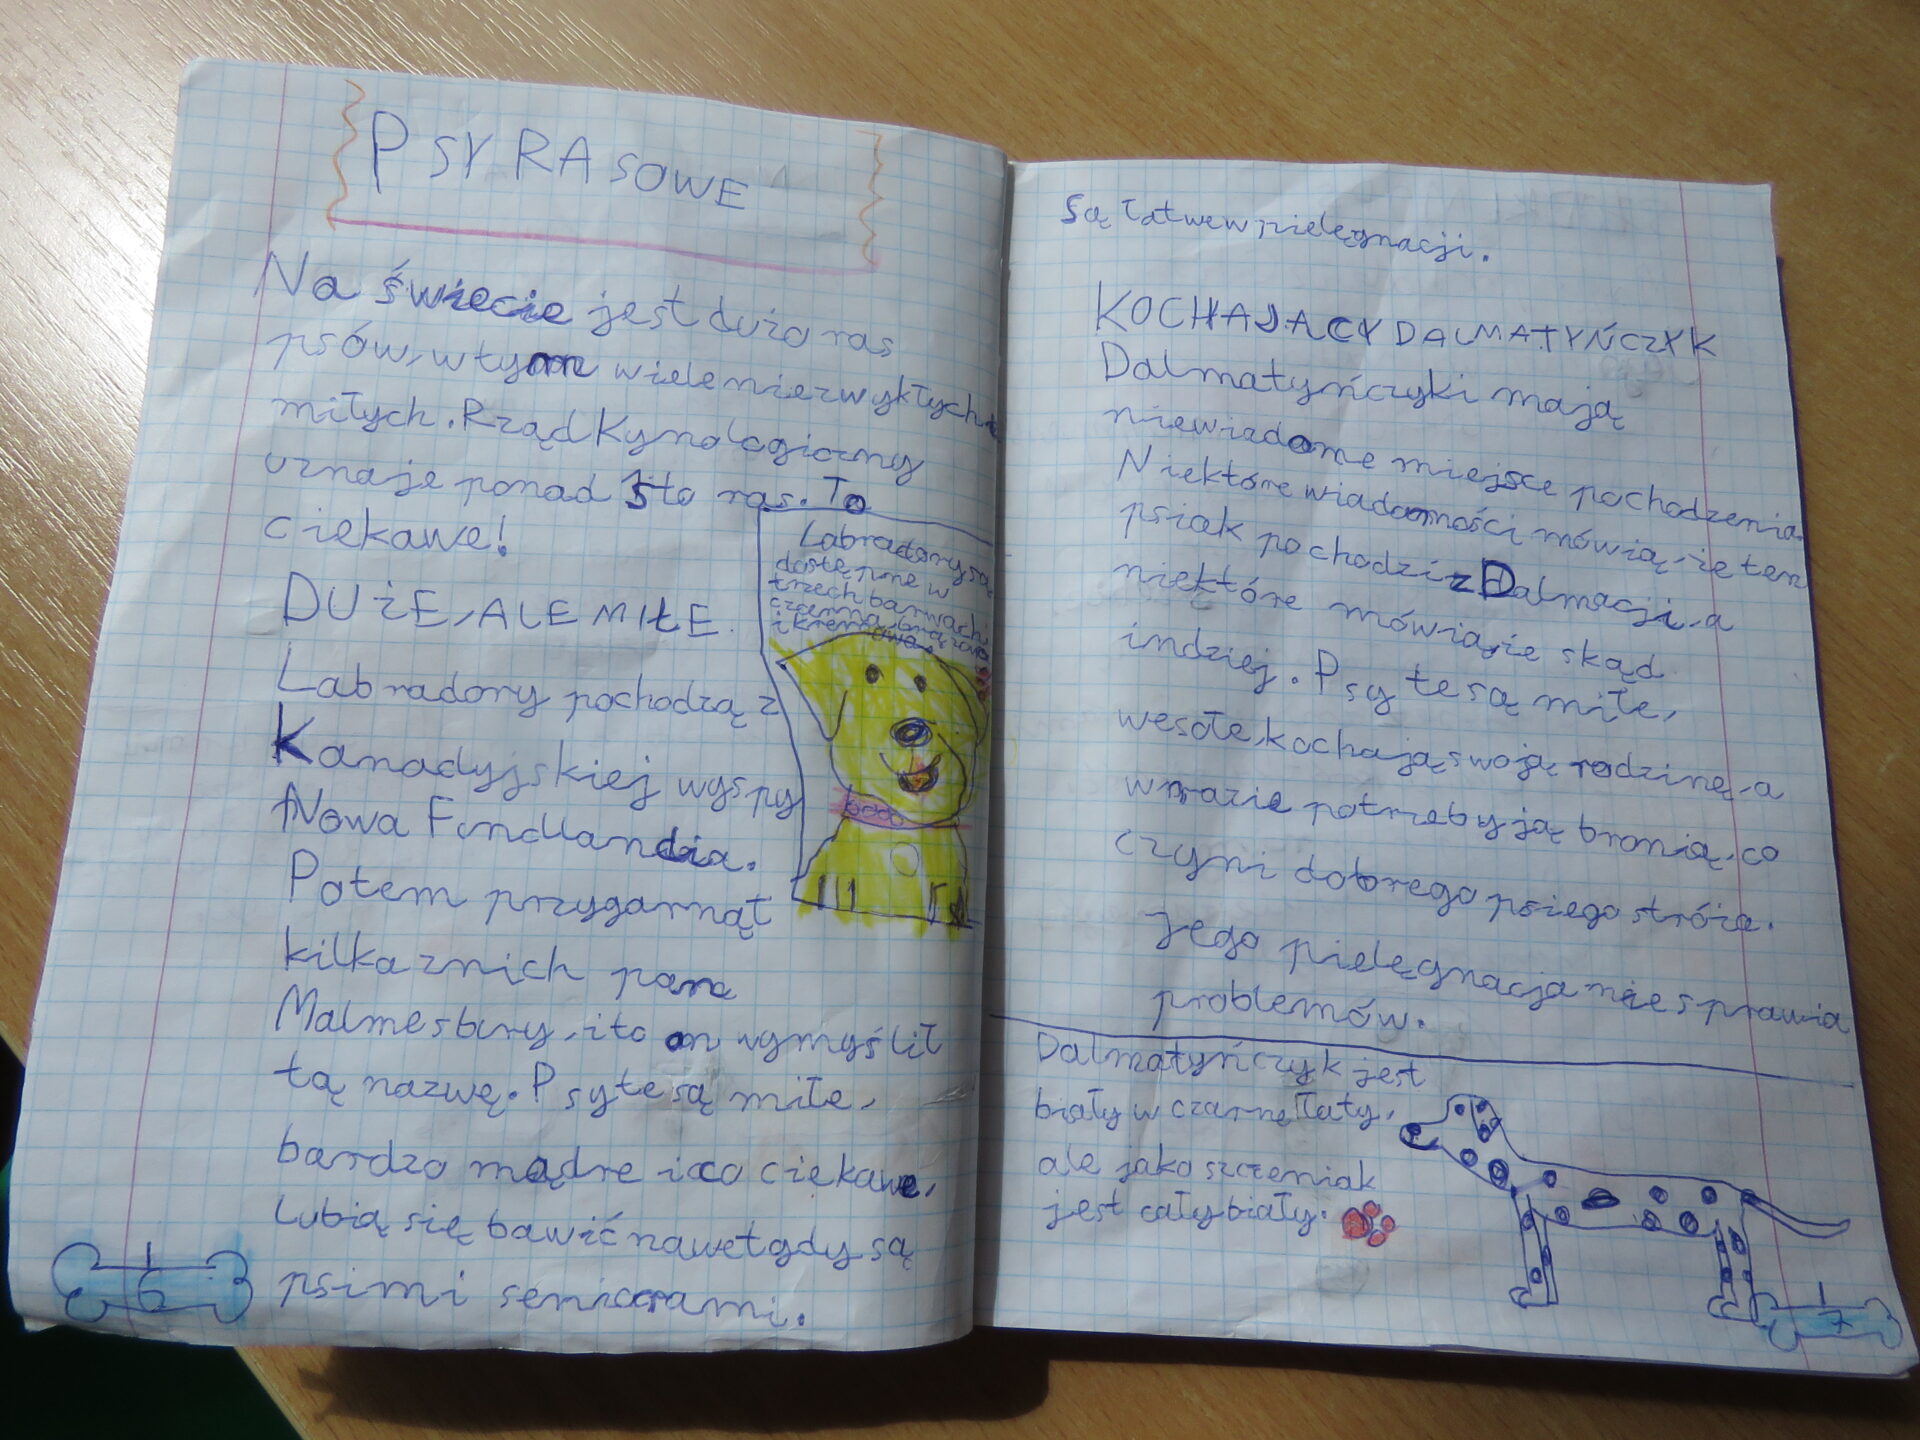 PSY RASOWE
Na świecie jest dużo ras
psów, w tym wiele niezwykłych
miłych. Rząd Kynologiczny
uznaje ponad sto ras. To
ciekawe!
DUŻE, ALE MIŁE.
Labradory pochodzą z
Kanadyjskiej wyspy
Nowa Fundlandia.
Potem przygarnął
kilka z nich pan
Malmesbury, i to on wymyślił
tą nazwę. Psy te są miłe,
bardzo mądre i co ciekawe,
Lubią się bawić nawet gdy są
psimi seniorami.
6
Labradory są
dostępne w
trzech barwach
czarna, brązowa
i kremowa
Są łatwe w pielęgnacji.
KOCHAJĄCY DALMATYŃCZYK
Dalmatyńczyki mają
niewiadome miejsce pochodzenia.
Niektóre wiadomości mówią, że ten
psiak pochodzi z Dalmacji, a
niektóre mówią, że skąd
indziej. Psy te są miłe,
wesołe, kochają swoją rodzinę, a
w razie potrzeby ją bronią, co
czyni dobrego psiego stróża.
Jego pielęgnacja nie sprawia
problemów.
Dalmatyńczyk jest
biały w czarne łaty,
ale jako szczeniak
jest cały biały.
7